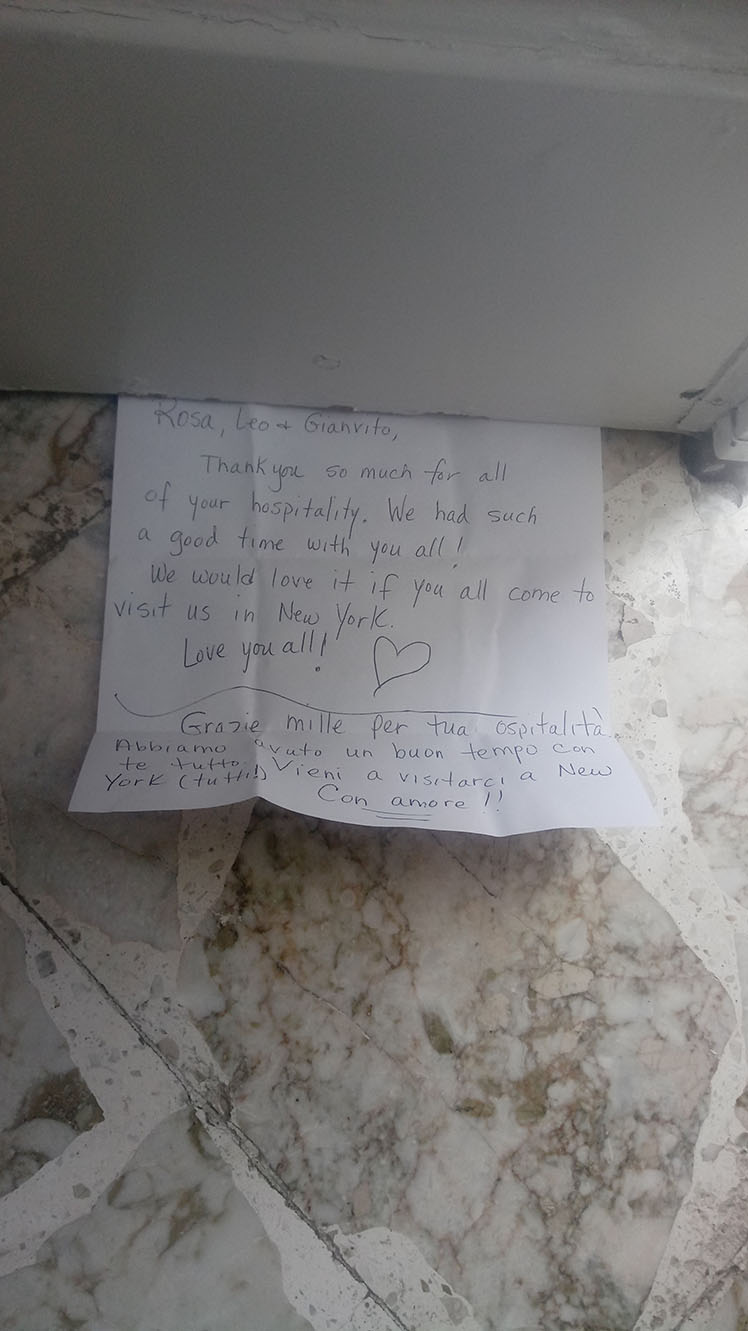 Rosa, Leo + Gianvito,
Thank you so much for all
of your hospitality. We had such
a good time with you all!
We would love it if you all come to
visit us in New York.
Love you all!
Grazie mille per tua ospitalità.
Abbiamo avuto un buon tempo con
te tutto. Vieni a visitarci a New
York (tutti!)
Con amore!!